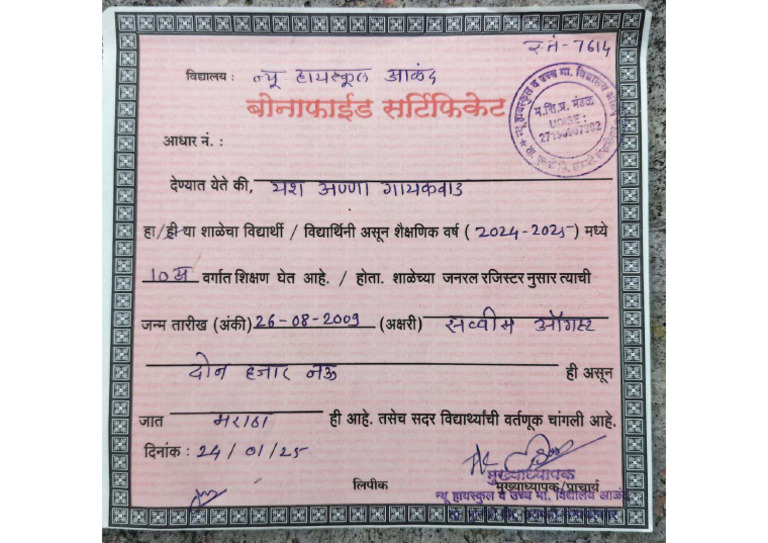 र.नं-7614
विद्यालय : न्यू हायस्कूल आळंद
बोनाफाईड सर्टिफिकेट
न्यू हायस्कुल व उच्च मा. विद्यालय
म.शि.प्र. मंडळ
UDISE :
आधार नं. :
देण्यात येते की, यश अण्णा गायकवाड
हा/ही या शाळेचा विद्यार्थी / विद्यार्थिनी असून शैक्षणिक वर्ष ( 2024-2025 ) मध्ये
10 अ वर्गात शिक्षण घेत आहे. / होता. शाळेच्या जनरल रजिस्टर नुसार त्याची
जन्म तारीख (अंकी) 26-08-2009 (अक्षरी) सव्वीस ऑगस्ट
दोन हजार नऊ ही असून
जात मराठा ही आहे. तसेच सदर विद्यार्थ्यांची वर्तणूक चांगली आहे.
दिनांक : 24/01/25
मुख्याध्यापक
लिपीक मुख्याध्यापक/प्राचार्य
न्यू हायस्कुल व उच्च मा. विद्यालय आळंद